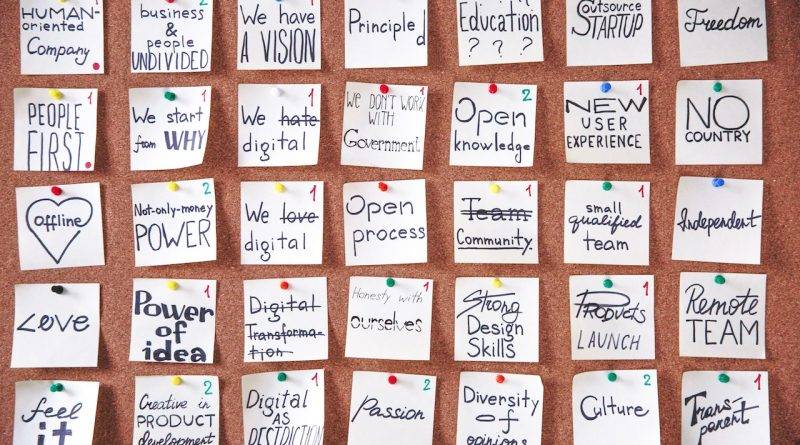 HUMAN-
oriented
Company
2
business
&
people
UNDIVIDED
We have
A VISION
Principled
Education
? ? ?
Outsource
STARTUP
Freedom
1
PEOPLE
FIRST
1
We start
from WHY
We hate
digital
1
We DON'T WORK
WITH
Government
2
Open
knowledge
1
NEW
USER
EXPERIENCE
NO
COUNTRY
offline
2
Not-only-money
POWER
1
We love
digital
Open
process
1
Team
Community
1
small
qualified
team
Independent
Love
1
Power
of
idea
Digital
Transforma-
tion
1
Honesty with
ourselves
Strong
Design
Skills
1
Products
LAUNCH
Remote
TEAM
feel
it
2
Creative in
PRODUCT
development
1
Digital
AS
RESTRICTION
2
Passion
1
Diversity
of
opinions
2
Culture
1
Trans-
parent